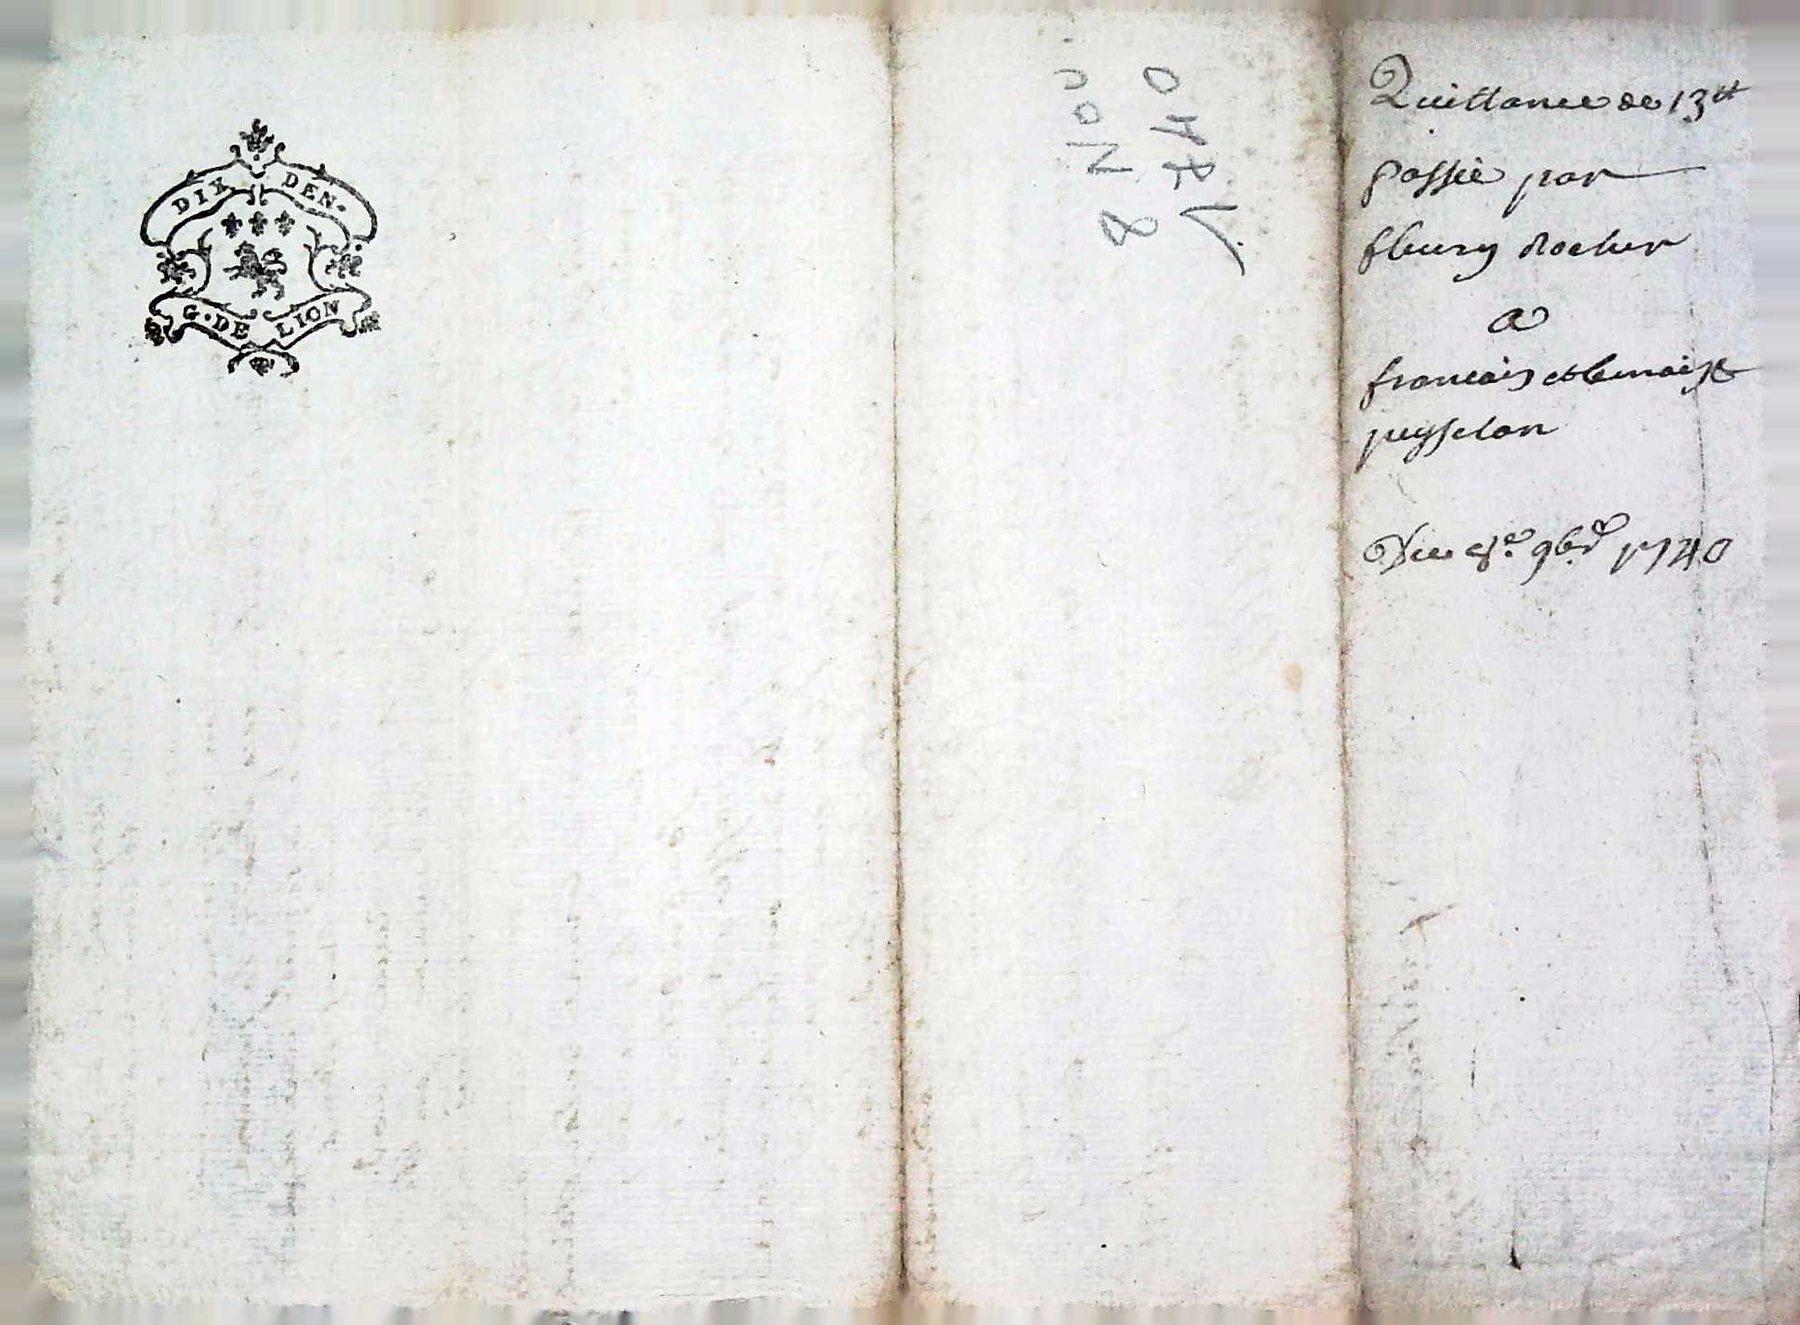 DIX DEN.
G. DE LION
8 NOV
1740
Quittance de 13tt
passée par
fleury Rocher
a
francois et benoist
peysselon
Du 8e. 9bre 1740